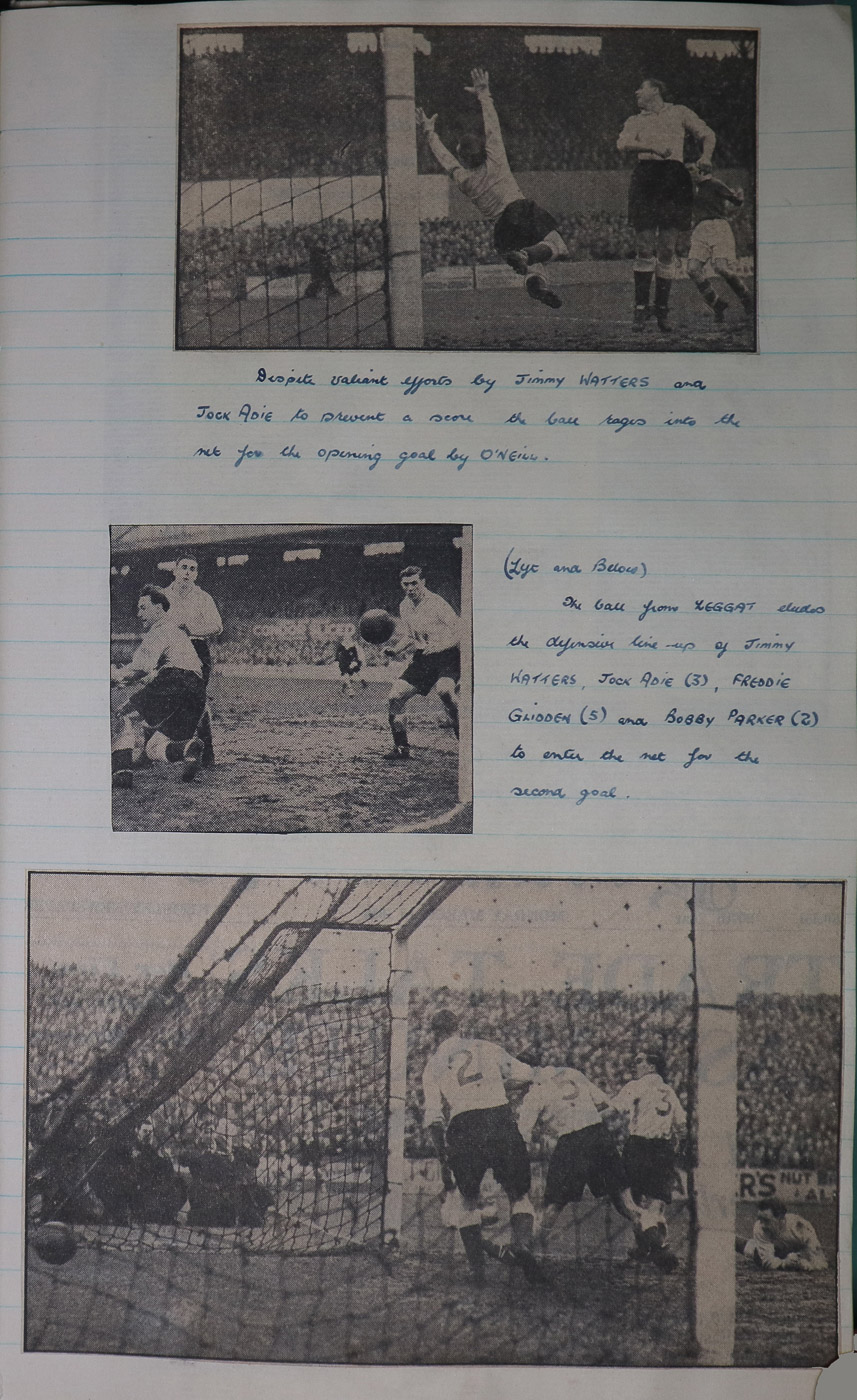 Despite valiant efforts by Jimmy WATTERS and
JOCK ADIE to prevent a score the ball rages into the
net for the opening goal by O'NEILL.
(Left and Below)
The ball from LEGGAT eludes
the defensive line-up of Jimmy
WATTERS, JOCK ADIE (3), FREDDIE
GLIDDEN (5) and BOBBY PARKER (2)
to enter the net for the
second goal.
2
5
3
ER'S NUT
ALE